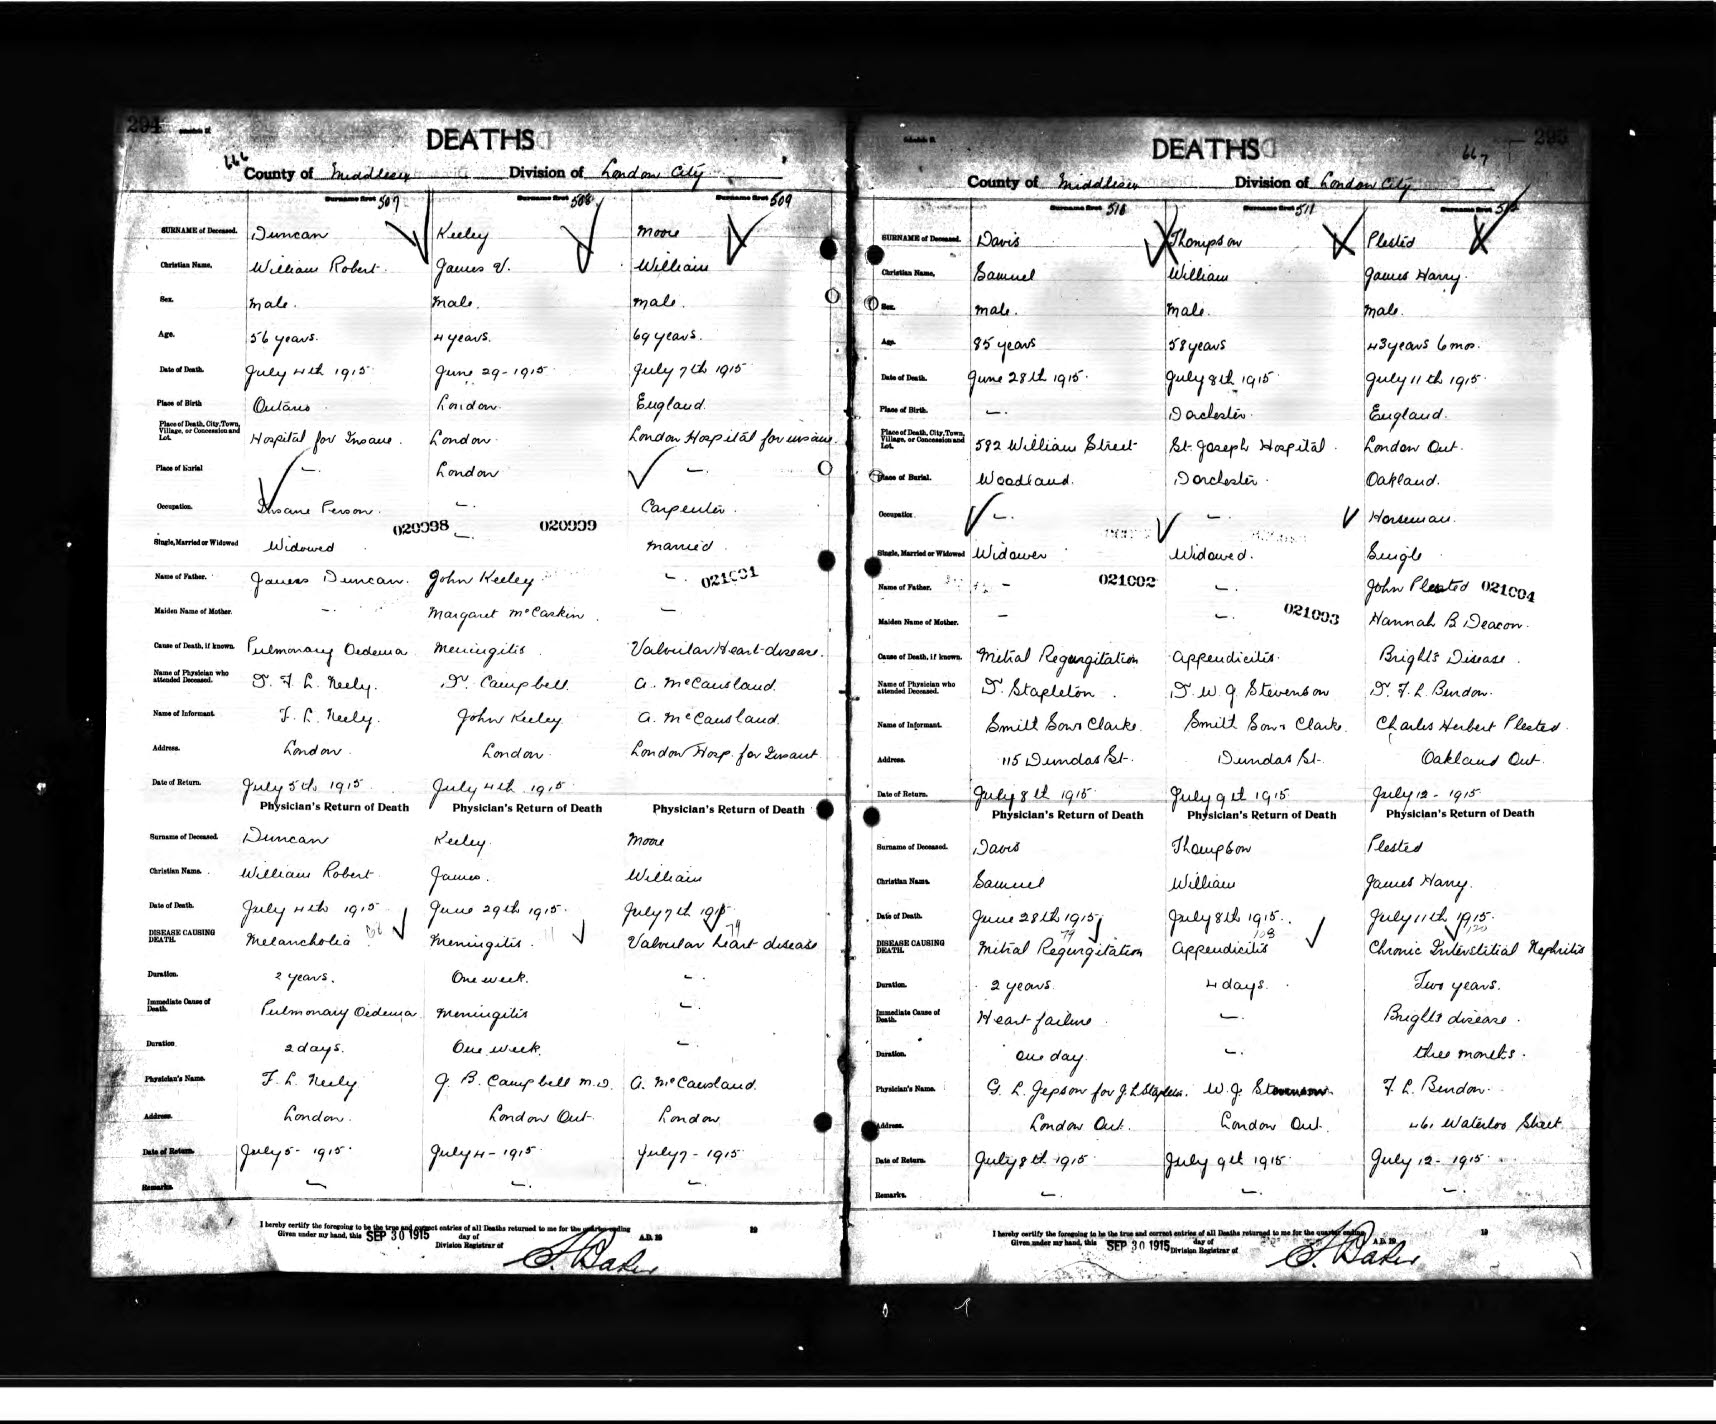 294
DEATHS
666
County of Middlesex Division of London City
Surname first 507 Surname first 508 Surname first 509
SURNAME of Deceased. Duncan Keeley Moore
Christian Name. William Robert. James V. William
Sex. male. male. male.
Age. 56 years. 4 years. 69 years.
Date of Death. July 4th 1915 June 29 - 1915 July 7th 1915
Place of Birth Ontario London England.
Place of Death, City, Town, Village, or Concession and Lot. Hospital for Insane. London London Hospital for insane.
Place of Burial – London –
Occupation. Insane Person. – Carpenter
020998 020999
Single, Married or Widowed Widowed – married
Name of Father. James Duncan. John Keeley – 021001
Maiden Name of Mother. – Margaret McCaskin –
Cause of Death, if known. Pulmonary Oedema Meningitis Valvular Heart-disease.
Name of Physician who attended Deceased. Dr. F. L. Neely. Dr. Campbell. A. McCausland.
Name of Informant. F. L. Neely. John Keeley A. McCausland.
Address. London London London Hosp. for Insane
Date of Return. July 5th 1915 July 4th 1915
Physician's Return of Death Physician's Return of Death Physician's Return of Death
Surname of Deceased. Duncan Keeley Moore
Christian Name. William Robert James. William
Date of Death. July 4th 1915 June 29th 1915 July 7th 1915
DISEASE CAUSING DEATH. Melancholia Meningitis Valvular heart disease 79
Duration. 2 years. One week. –
Immediate Cause of Death. Pulmonary Oedema Meningitis –
Duration 2 days. One week. –
Physician's Name. F. L. Neely J. B. Campbell M.D. A. McCausland.
Address. London. London Ont. London
Date of Return. July 5 - 1915 July 4 - 1915 July 7 - 1915
Remarks. – – –
I hereby certify the foregoing to be the true and correct entries of all Deaths returned to me for the quarter ending 19
Given under my hand, this SEP 30 1915 day of A.D. 19
Division Registrar of
S. Baker
295
DEATHS
667
County of Middlesex Division of London City
Surname first 510 Surname first 511 Surname first 512
SURNAME of Deceased. Davis Thompson Plested
Christian Name. Samuel William James Harry.
Sex. male. Male. Male.
Age. 85 years 58 years 43 years 6 mos.
Date of Death. June 28th 1915 July 8th 1915 July 11th 1915
Place of Birth. – Dorchester England.
Place of Death, City, Town, Village, or Concession and Lot. 592 William Street St. Joseph Hospital London Ont.
Place of Burial. Woodland. Dorchester Oakland.
Occupation – – Horseman.
Single, Married or Widowed Widower Widowed. Single
Name of Father. – 021002 – John Plested 021004
Maiden Name of Mother. – – 021003 Hannah B Deacon.
Cause of Death, if known. Mitral Regurgitation Appendicitis Bright's Disease.
Name of Physician who attended Deceased. Dr. Stapleton Dr W. J. Stevenson Dr. F. L. Burdon.
Name of Informant. Smith Son & Clarke Smith Son & Clarke. Charles Herbert Plested
Address. 115 Dundas St. Dundas St. Oakland Ont.
Date of Return. July 8th 1915 July 9th 1915 July 12 - 1915
Physician's Return of Death Physician's Return of Death Physician's Return of Death
Surname of Deceased. Davis Thompson Plested
Christian Name. Samuel William James Harry.
Date of Death. June 28th 1915 July 8th 1915 July 11th 1915
79 108 120
DISEASE CAUSING DEATH. Mitral Regurgitation Appendicitis Chronic Interstitial Nephritis
Duration. 2 years. 4 days. Two years.
Immediate Cause of Death. Heart failure – Bright's disease
Duration. one day – three months.
Physician's Name. G. L. Jepson for J. L Stapleton. W. J. Stevenson F. L. Burdon
Address. London Ont. London Ont. 461 Waterloo Street
Date of Return. July 8th 1915 July 9th 1915 July 12 - 1915
Remarks. – – –
I hereby certify the foregoing to be the true and correct entries of all Deaths returned to me for the quarter ending 19
Given under my hand, this SEP 30 1915 day of A.D. 19
Division Registrar of
S. Baker